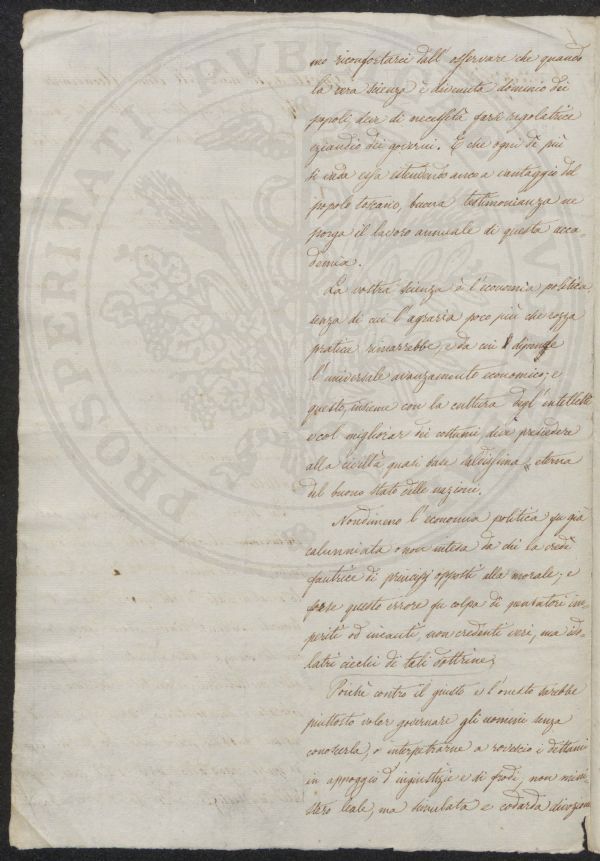 mo riconfortarci dall' osservare che quando
la vera scienza è divenuta dominio dei
popoli deve di necessità farsi regolatrice
eziandio dei governi. E che ogni dì più
si vada essa estendendo anco a vantaggio del
popolo toscano, buona testimonianza ne
porga il lavoro annuale di questa acca-
demia.
La vostra scienza è l'economia politica
senza di cui l'agraria poco più che rozza
pratica rimarrebbe, e da cui dipende
l'universale avanzamento economico; e
questo, insieme con la cultura degl'intelletti
e col migliorar dei costumi, deve presiedere
alla civiltà quasi base saldissima eterna
del buono stato delle nazioni.
Nondimeno l'economia politica fu già
calunniata o non intesa da chi la credè
fautrice di principj opposti alla morale; e
forse questo errore fu colpa di pensatori im-
periti od incauti, non credenti veri, ma ido-
latri ciechi di tali dottrine;
Poichè contro il giusto e l'onesto sarebbe
piuttosto voler governare gli uomini senza
conoscerla, o interpetrarne a rovescio i dettami
in appoggio d'ingiustizie e di frodi, non mini-
stero leale, ma simulata e codarda devozione
PROSPERITATI PVBLICAE